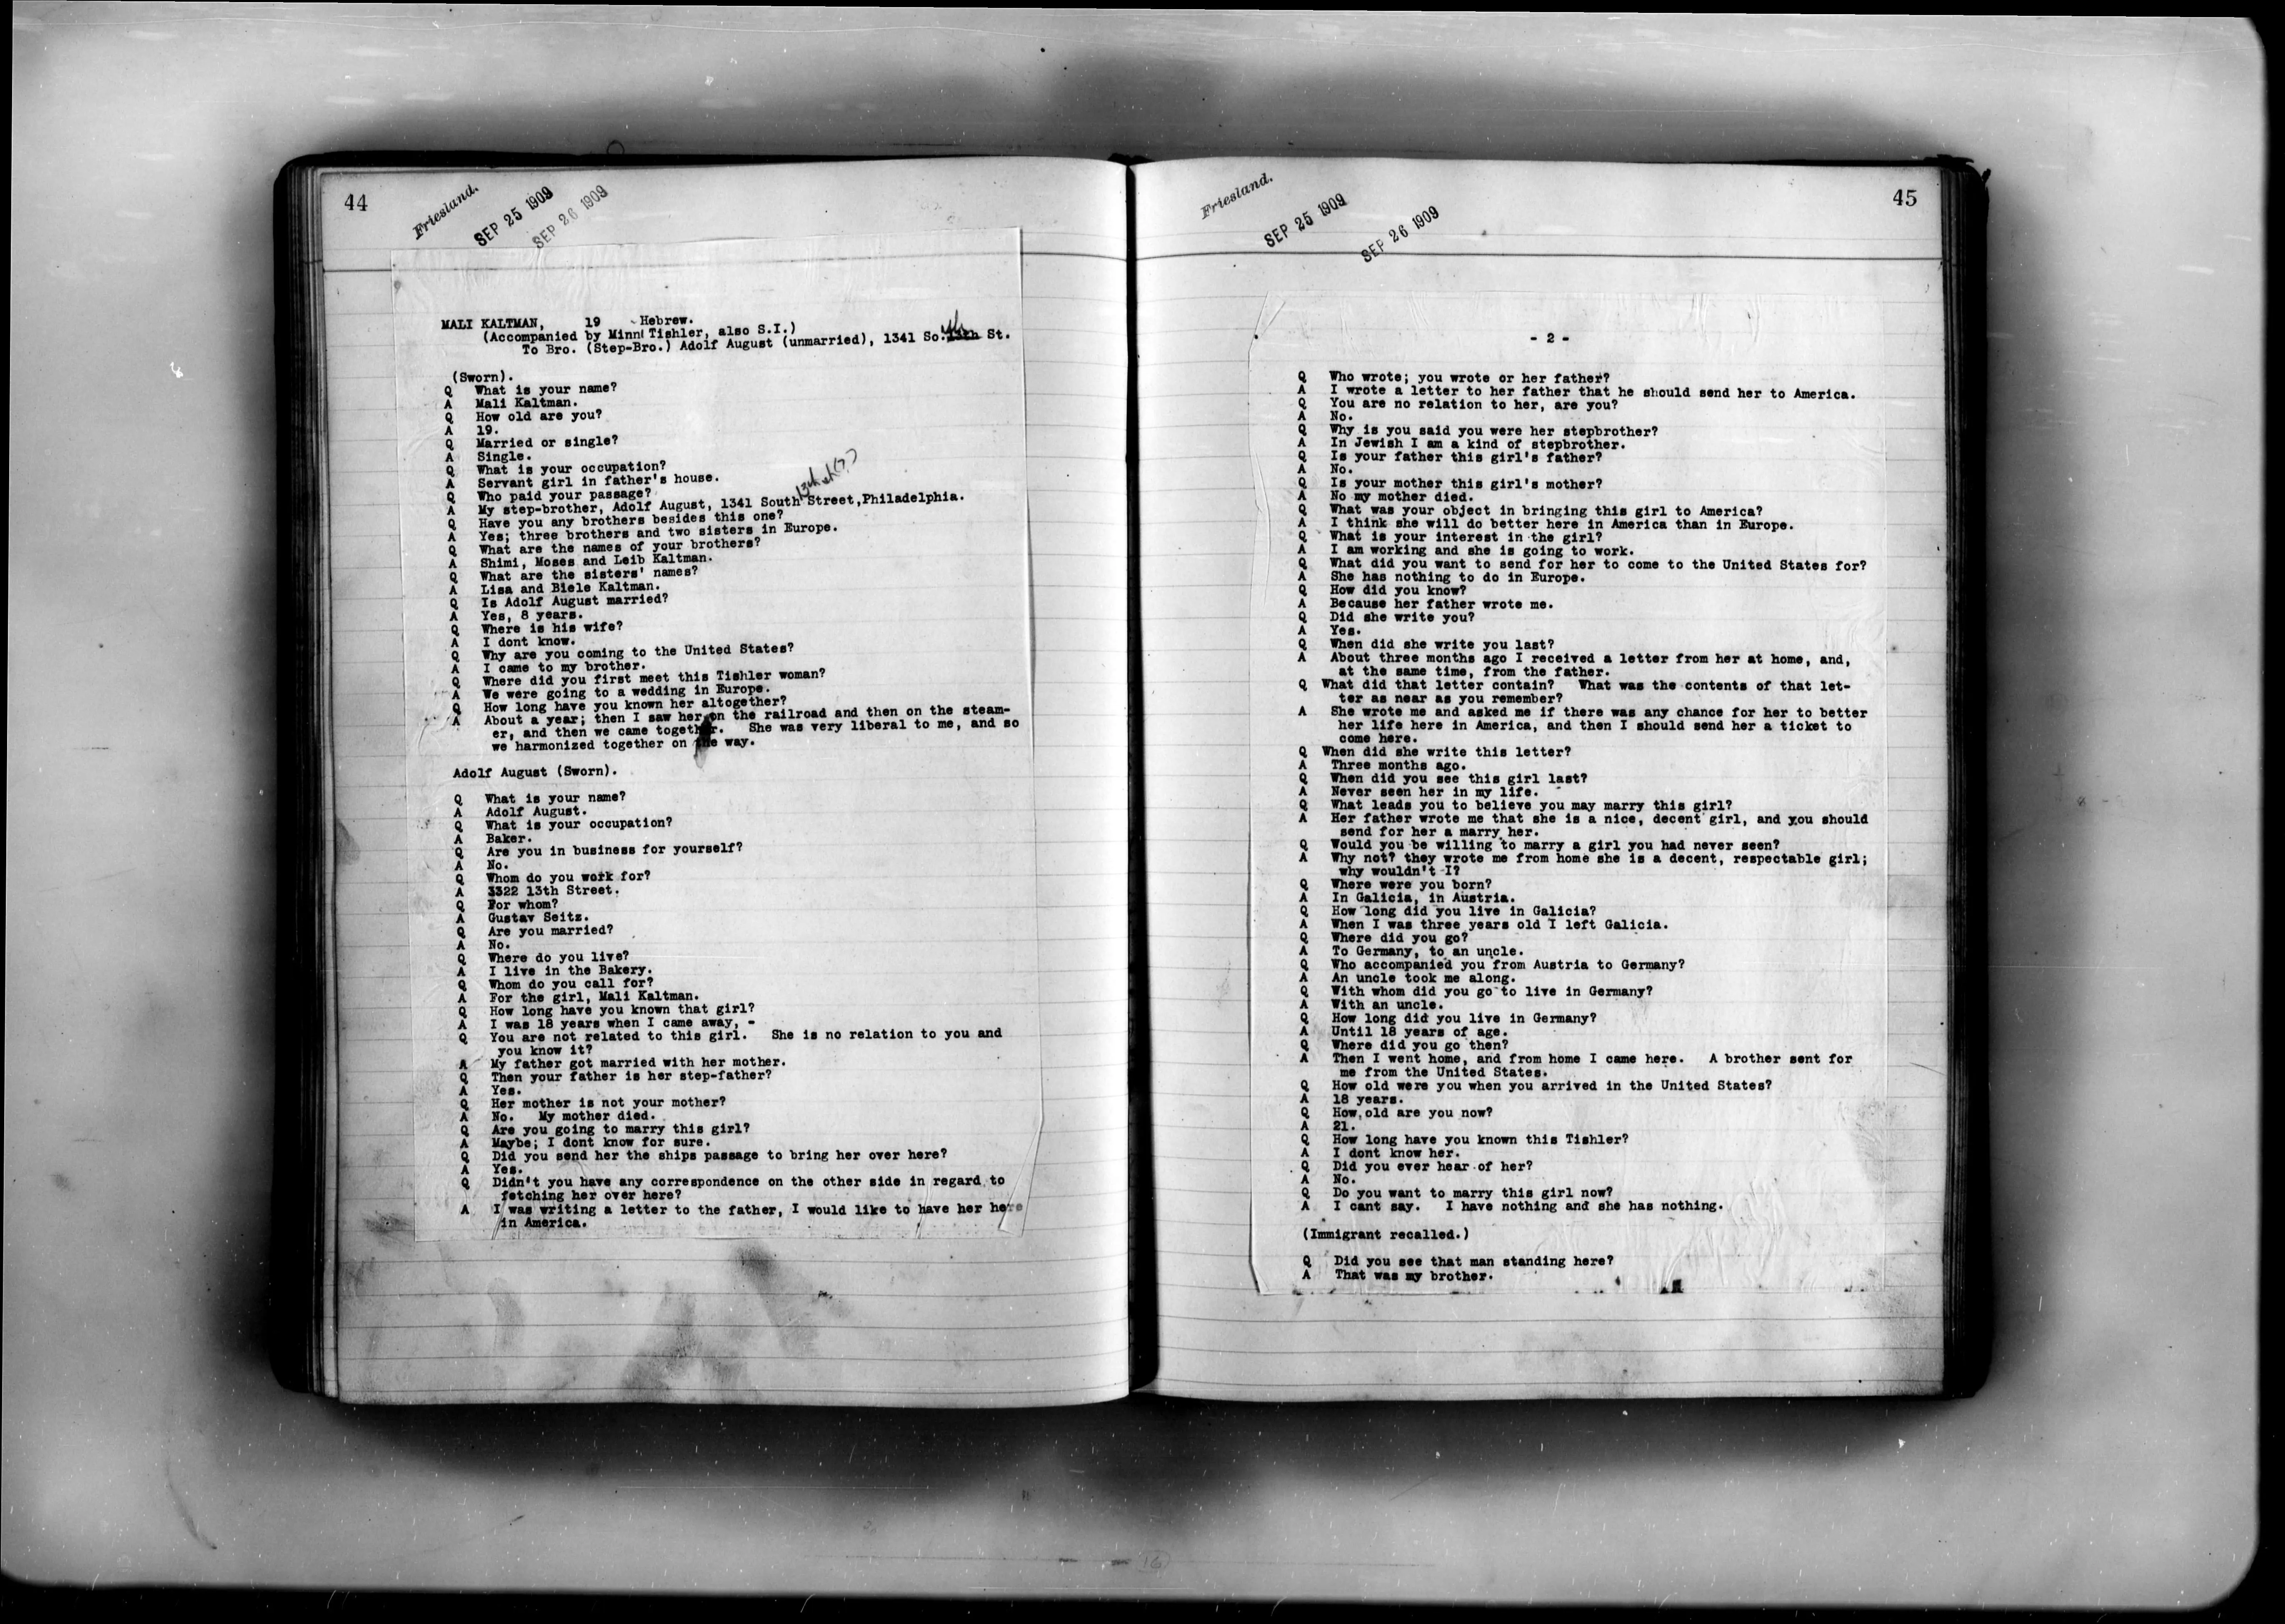 44
Friesland.
SEP 25 1909
SEP 26 1909
MALI KALTMAN, 19 Hebrew.
(Accompanied by Minni Tishler, also S.I.)
To Bro. (Step-Bro.) Adolf August (unmarried), 1341 So. 13th St.
(Sworn).
Q What is your name?
A Mali Kaltman.
Q How old are you?
A 19.
Q Married or single?
A Single.
Q What is your occupation?
A Servant girl in father's house.
Q Who paid your passage?
13th st (?)
A My step-brother, Adolf August, 1341 South Street,Philadelphia.
Q Have you any brothers besides this one?
A Yes; three brothers and two sisters in Europe.
Q What are the names of your brothers?
A Shimi, Moses and Leib Kaltman.
Q What are the sisters' names?
A Lisa and Biele Kaltman.
Q Is Adolf August married?
A Yes, 8 years.
Q Where is his wife?
A I dont know.
Q Why are you coming to the United States?
A I came to my brother.
Q Where did you first meet this Tishler woman?
A We were going to a wedding in Europe.
Q How long have you known her altogether?
A About a year; then I saw her on the railroad and then on the steam-
er, and then we came together. She was very liberal to me, and so
we harmonized together on the way.
Adolf August (Sworn).
Q What is your name?
A Adolf August.
Q What is your occupation?
A Baker.
Q Are you in business for yourself?
A No.
Q Whom do you work for?
A 3322 13th Street.
Q For whom?
A Gustav Seitz.
Q Are you married?
A No.
Q Where do you live?
A I live in the Bakery.
Q Whom do you call for?
A For the girl, Mali Kaltman.
Q How long have you known that girl?
A I was 18 years when I came away, -
Q You are not related to this girl. She is no relation to you and
you know it?
A My father got married with her mother.
Q Then your father is her step-father?
A Yes.
Q Her mother is not your mother?
A No. My mother died.
Q Are you going to marry this girl?
A Maybe; I dont know for sure.
Q Did you send her the ships passage to bring her over here?
A Yes.
Q Didn't you have any correspondence on the other side in regard to
fetching her over here?
A I was writing a letter to the father, I would like to have her here
in America.
45
Friesland.
SEP 25 1909
SEP 26 1909
- 2 -
Q Who wrote; you wrote or her father?
A I wrote a letter to her father that he should send her to America.
Q You are no relation to her, are you?
A No.
Q Why is you said you were her stepbrother?
A In Jewish I am a kind of stepbrother.
Q Is your father this girl's father?
A No.
Q Is your mother this girl's mother?
A No my mother died.
Q What was your object in bringing this girl to America?
A I think she will do better here in America than in Europe.
Q What is your interest in the girl?
A I am working and she is going to work.
Q What did you want to send for her to come to the United States for?
A She has nothing to do in Europe.
Q How did you know?
A Because her father wrote me.
Q Did she write you?
A Yes.
Q When did she write you last?
A About three months ago I received a letter from her at home, and,
at the same time, from the father.
Q What did that letter contain? What was the contents of that let-
ter as near as you remember?
A She wrote me and asked me if there was any chance for her to better
her life here in America, and then I should send her a ticket to
come here.
Q When did she write this letter?
A Three months ago.
Q When did you see this girl last?
A Never seen her in my life.
Q What leads you to believe you may marry this girl?
A Her father wrote me that she is a nice, decent girl, and you should
send for her a marry her.
Q Would you be willing to marry a girl you had never seen?
A Why not? they wrote me from home she is a decent, respectable girl;
why wouldn't I?
Q Where were you born?
A In Galicia, in Austria.
Q How long did you live in Galicia?
A When I was three years old I left Galicia.
Q Where did you go?
A To Germany, to an uncle.
Q Who accompanied you from Austria to Germany?
A An uncle took me along.
Q With whom did you go to live in Germany?
A With an uncle.
Q How long did you live in Germany?
A Until 18 years of age.
Q Where did you go then?
A Then I went home, and from home I came here. A brother sent for
me from the United States.
Q How old were you when you arrived in the United States?
A 18 years.
Q How old are you now?
A 21.
Q How long have you known this Tishler?
A I dont know her.
Q Did you ever hear of her?
A No.
Q Do you want to marry this girl now?
A I cant say. I have nothing and she has nothing.
(Immigrant recalled.)
Q Did you see that man standing here?
A That was my brother.
16